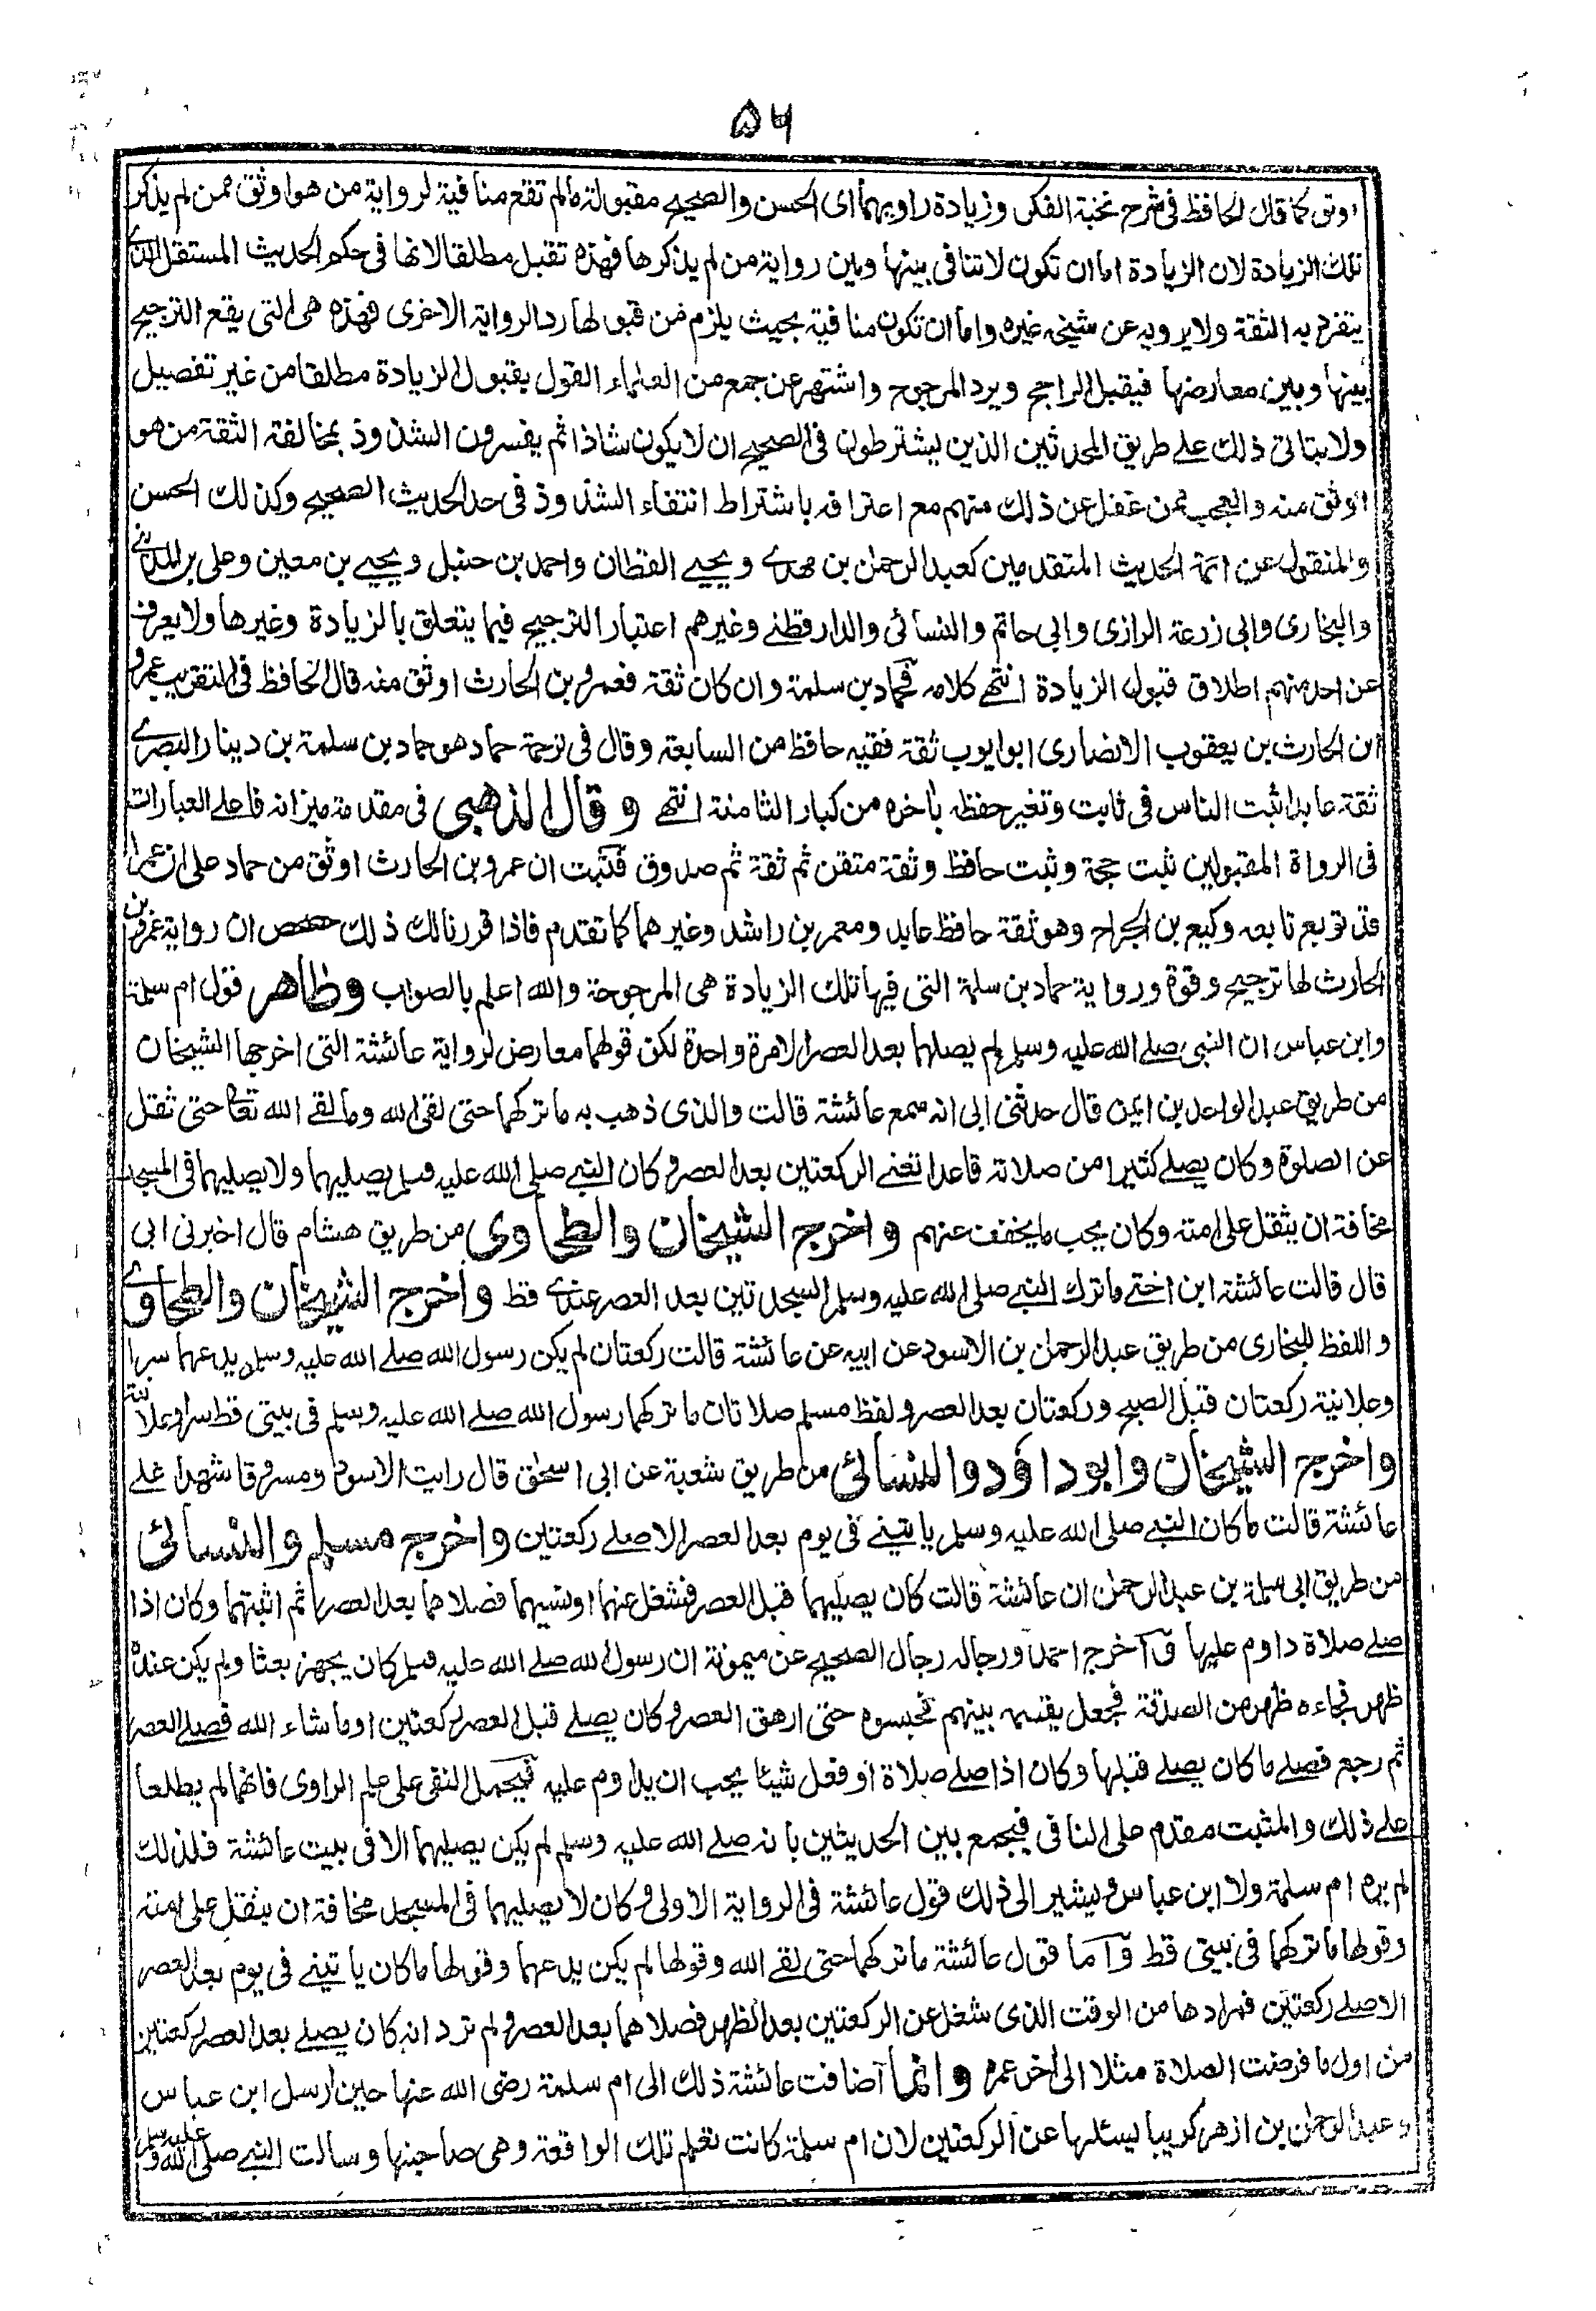 ٥٦
اوثق كما قال الحافظ فى شرح نخبة الفكر وزيادة راويهما اى الحسن والصحيح مقبولة مالم تقع منافية لرواية من هو اوثق ممن لم يذكر
تلك الزيادة لان الزيادة اما ان تكون لا تنافى بينها وبين رواية من لم يذكرها فهذه تقبل مطلقا لانها فى حكم الحديث المستقل الذى
يتفرد به الثقة ولا يرويه عن شيخه غيره واما ان تكون منافية بحيث يلزم من قبولها رد الرواية الاخرى فهذه هى التى يقع الترجيح
بينها وبين معارضها فيقبل الراجح ويرد المرجوح واشتهر عن جمع من العلماء القول بقبول الزيادة مطلقا من غير تفصيل
ولا يتاتى ذلك على طريق المحدثين الذين يشترطون فى الصحيح ان لا يكون شاذا ثم يفسرون الشذوذ بمخالفة الثقة من هو
اوثق منه والعجب ممن غفل عن ذلك منهم مع اعترافه باشتراط انتفاء الشذوذ فى حد الحديث الصحيح وكذلك الحسن
والمنقول عن ائمة الحديث المتقدمين كعبد الرحمن بن مهدے ويحيے القطان واحمد بن حنبل ويحيے بن معين وعلى بن المدينے
والبخارى وابى زرعة الرازى وابى حاتم والنسائى والدارقطنے وغيرهم اعتبار الترجيح فيما يتعلق بالزيادة وغيرها ولا يعرف
عن احد منهم اطلاق قبول الزيادة انتهے كلامه فحماد بن سلمة وان كان ثقة فعمرو بن الحارث اوثق منه قال الحافظ فى التقريب عمرو
ابن الحارث بن يعقوب الانصارى ابو ايوب ثقة فقيه حافظ من السابعة وقال فى ترجمة حماد هو حماد بن سلمة بن دينار البصرے
ثقة عابد اثبت الناس فى ثابت وتغير حفظه باخره من كبار الثامنة انتهے وقال الذهبى فى مقدمة ميزانه فاعلے العبارات
فى الرواة المقبولين ثبت حجة وثبت حافظ وثقة متقن ثم ثقة ثم صدوق فثبت ان عمرو بن الحارث اوثق من حماد على ان عمرا
قد توبع تابعه وكيع بن الجراح وهو ثقة حافظ عابد ومعمر بن راشد وغيرهما كما تقدم فاذا قررنا لك ذلك حصحص ان رواية عمرو بن
الحارث لها ترجيح وقوة ورواية حماد بن سلمة التى فيها تلك الزيادة هى المرجوحة والله اعلم بالصواب وظاهر قول ام سلمة
وابن عباس ان النبى صلے الله عليه وسلم لم يصلهما بعد العصر الا مرة واحدة لكن قولهما معارض لرواية عائشة التى اخرجها الشيخان
من طريق عبد الواحد بن ايمن قال حدثنى ابى انه سمع عائشة قالت والذى ذهب به ما تركهما حتى لقى الله وما لقے الله تعالى حتى ثقل
عن الصلوة وكان يصلے كثيرا من صلاته قاعدا تعنے الركعتين بعد العصر وكان النبے صلى الله عليه وسلم يصليهما ولا يصليهما فى المسجد
مخافة ان يثقل على امته وكان يحب ما يخفف عنهم واخرج الشيخان والطحاوى من طريق هشام قال اخبرنى ابى
قال قالت عائشة ابن اختے ما ترك النبے صلى الله عليه وسلم السجدتين بعد العصر عندے قط واخرج الشيخان والطحاوے
واللفظ للبخارى من طريق عبد الرحمن بن الاسود عن ابيه عن عائشة قالت ركعتان لم يكن رسول الله صلے الله عليه وسلم يدعهما سرا
وعلانية ركعتان قبل الصبح وركعتان بعد العصر ولفظ مسلم صلاتان ما تركهما رسول الله صلے الله عليه وسلم فى بيتى قط سرا وعلانية
واخرج الشيخان وابو داؤد والنسائى من طريق شعبة عن ابى اسحق قال رايت الاسود ومسروقا شهدا علے
عائشة قالت ما كان النبے صلى الله عليه وسلم ياتينے فى يوم بعد العصر الا صلے ركعتين واخرج مسلم والنسائى
من طريق ابى سلمة بن عبد الرحمن ان عائشة قالت كان يصليهما قبل العصر فشغل عنهما او نسيهما فصلاهما بعد العصر ثم اثبتهما وكان اذا
صلے صلاة داوم عليها واخرج احمد ورجاله رجال الصحيح عن ميمونة ان رسول الله صلے الله عليه وسلم كان يجهز بعثا ولم يكن عنده
ظهر فجاءه ظهر من الصدقة فجعل يقسمه بينهم فحبسوه حتى ارهق العصر وكان يصلے قبل العصر ركعتين او ما شاء الله فصلے العصر
ثم رجع فصلے ما كان يصلے قبلها وكان اذا صلے صلاة او فعل شيئا يحب ان يداوم عليه فيحمل النفى على علم الراوى فانهما لم يطلعا
علے ذلك والمثبت مقدم على النافى فيجمع بين الحديثين بانه صلے الله عليه وسلم لم يكن يصليهما الا فى بيت عائشة فلذلك
لم يره ام سلمة ولا ابن عباس ويشير الى ذلك قول عائشة فى الرواية الاولى وكان لا يصليهما فى المسجد مخافة ان يثقل على امته
وقولها ما تركهما فى بيتى قط واما قول عائشة ما تركهما حتى لقے الله وقولها لم يكن يدعهما وقولها ما كان ياتينے فى يوم بعد العصر
الا صلے ركعتين فمرادها من الوقت الذى شغل عن الركعتين بعد الظهر فصلاهما بعد العصر ولم ترد انه كان يصلے بعد العصر ركعتين
من اول ما فرضت الصلاة مثلا الى اخر عمره وانما اضافت عائشة ذلك الى ام سلمة رضى الله عنها حين ارسل ابن عباس
وعبد الرحمن بن ازهر كريبا يسئلها عن الركعتين لان ام سلمة كانت تعلم تلك الواقعة وهى صاحبتها وسالت النبے صلى الله عليه وسلم